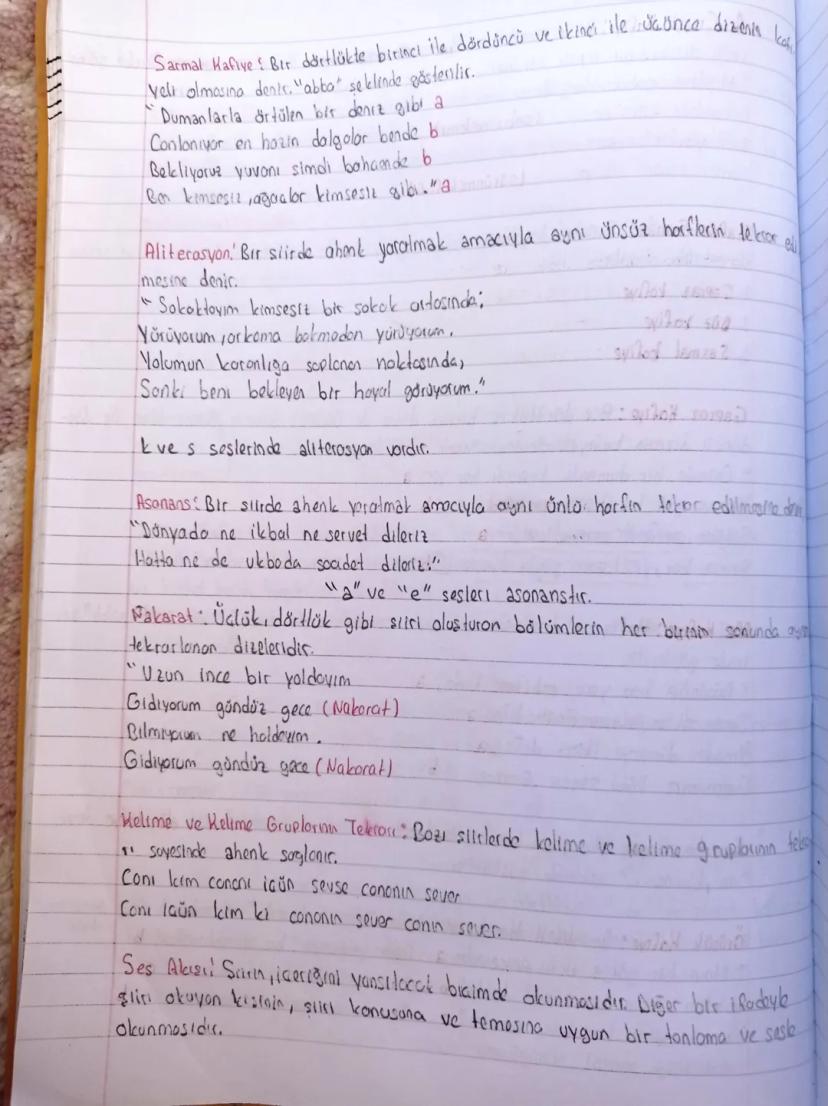 Sarmal Kafiye: Bir dörtlükte birinci ile dördüncü ve ikinci ile üçüncü dizenin kafi
yeli olmasına denir. "abba" şeklinde gösterilir.
"Dumanlarla örtülen bir deniz gibi a
Canlanıyor en hazin dalgalar bende b
Bekliyoruz yuvanı şimdi bahçende b
Ben kimsesiz, ağaçlar kimsesiz gibi." a
Aliterasyon: Bir şiirde ahenk yaratmak amacıyla aynı ünsüz harflerin tekrar edil
mesine denir.
"Sokaktayım kimsesiz bir sokak ortasında;
Yürüyorum, arkama bakmadan yürüyorum.
Yolumun karanlığa saplanan noktasında,
Sanki beni bekleyen bir hayal görüyorum."
k ve s seslerinde aliterasyon vardır.
Asonans: Bir şiirde ahenk yaratmak amacıyla aynı ünlü harfin tekrar edilmesine denir
"Dünyada ne ikbal ne servet dileriz
Hatta ne de ukbada saadet dileriz."
"a" ve "e" sesleri asonanstır.
Nakarat: Üçlük, dörtlük gibi şiiri oluşturan bölümlerin her birinin sonunda aynı
tekrarlanan dizeleridir.
"Uzun ince bir yoldayım
Gidiyorum gündüz gece (Nakarat)
Bilmiyorum ne haldeyim.
Gidiyorum gündüz gece (Nakarat)
Kelime ve Kelime Gruplarının Tekrarı: Bazı şiirlerde kelime ve kelime gruplarının tekra
rı sayesinde ahenk sağlanır.
Canı kim cananı içün sevse cananın sever
Canı içün kim ki cananın sever canın sever.
Ses Akışı: Şiirin, içeriğini yansıtacak biçimde okunmasıdır. Diğer bir ifadeyle
şiiri okuyan kişinin, şiiri konusuna ve temasına uygun bir tonlama ve sesle
okunmasıdır.